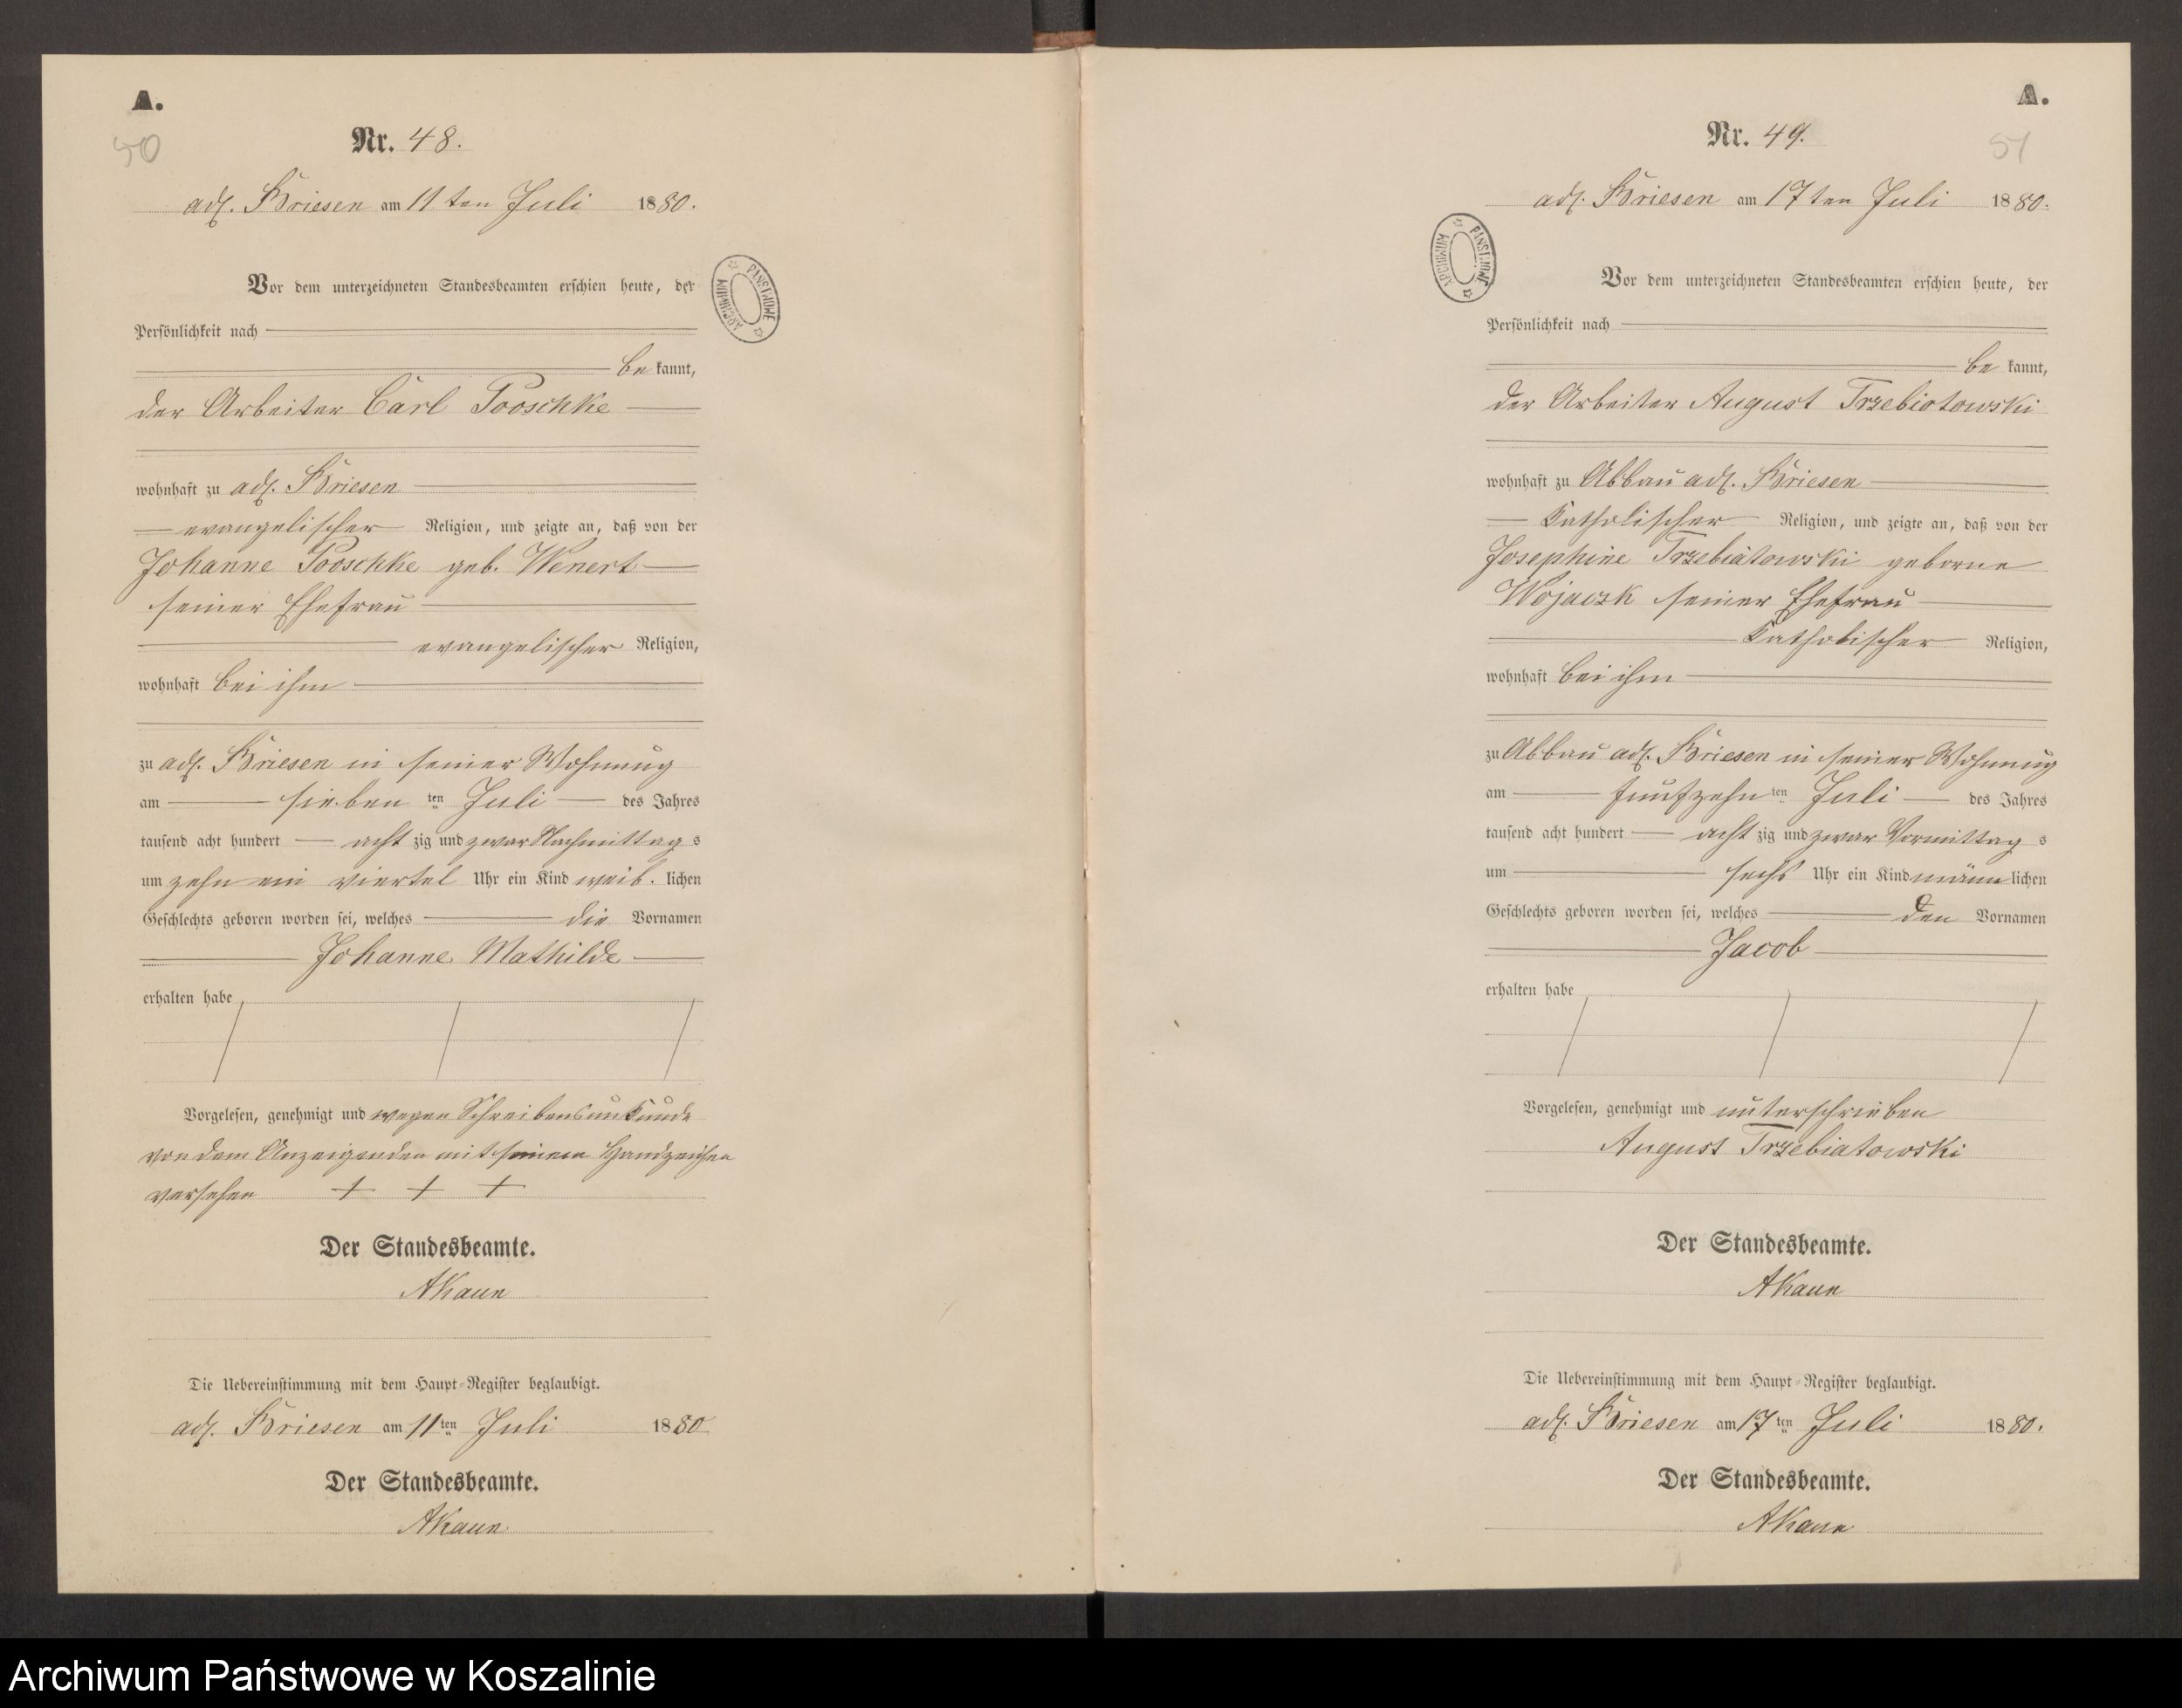 A.
50
Nr. 48.
adl. Briesen am 11 ten Juli 1880.
Vor dem unterzeichneten Standesbeamten erschien heute, der
Persönlichkeit nach
be kannt,
der Arbeiter Carl Pooschke
wohnhaft zu adl. Briesen
evangelischer Religion, und zeigte an, daß von der
Johanne Pooschke geb. Wenert
seiner Ehefrau
evangelischer Religion,
wohnhaft bei ihm
zu adl. Briesen in seiner Wohnung
am sieben ten Juli des Jahres
tausend acht hundert acht zig und zwar Nachmittag s
um zehn ein viertel Uhr ein Kind weib. lichen
Geschlechts geboren worden sei, welches die Vornamen
Johanne Mathilde
erhalten habe
Vorgelesen, genehmigt und wegen Schreibensunkunde
von dem Anzeigenden mit seinem Handzeichen
versehen + + +
Der Standesbeamte.
AKaun
Die Uebereinstimmung mit dem Haupt-Register beglaubigt.
adl. Briesen am 11 ten Juli 1880
Der Standesbeamte.
AKaun
ARCHIWUM PAŃSTWOWE
A.
51
Nr. 49.
adl. Briesen am 17 ten Juli 1880.
Vor dem unterzeichneten Standesbeamten erschien heute, der
Persönlichkeit nach
be kannt,
der Arbeiter August Trzebiatowski
wohnhaft zu Abbau adl. Briesen
Katholischer Religion, und zeigte an, daß von der
Josephine Trzebiatowski geborne
Wojaczk seiner Ehefrau
Katholischer Religion,
wohnhaft bei ihm
zu Abbau adl. Briesen in seiner Wohnung
am funfzehn ten Juli des Jahres
tausend acht hundert acht zig und zwar Vormittag s
um sechs Uhr ein Kind männ lichen
Geschlechts geboren worden sei, welches den Vornamen
Jacob
erhalten habe
Vorgelesen, genehmigt und unterschrieben
August Trzebiatowski
Der Standesbeamte.
AKaun
Die Uebereinstimmung mit dem Haupt-Register beglaubigt.
adl. Briesen am 17 ten Juli 1880.
Der Standesbeamte.
AKaun
ARCHIWUM PAŃSTWOWE
Archiwum Państwowe w Koszalinie